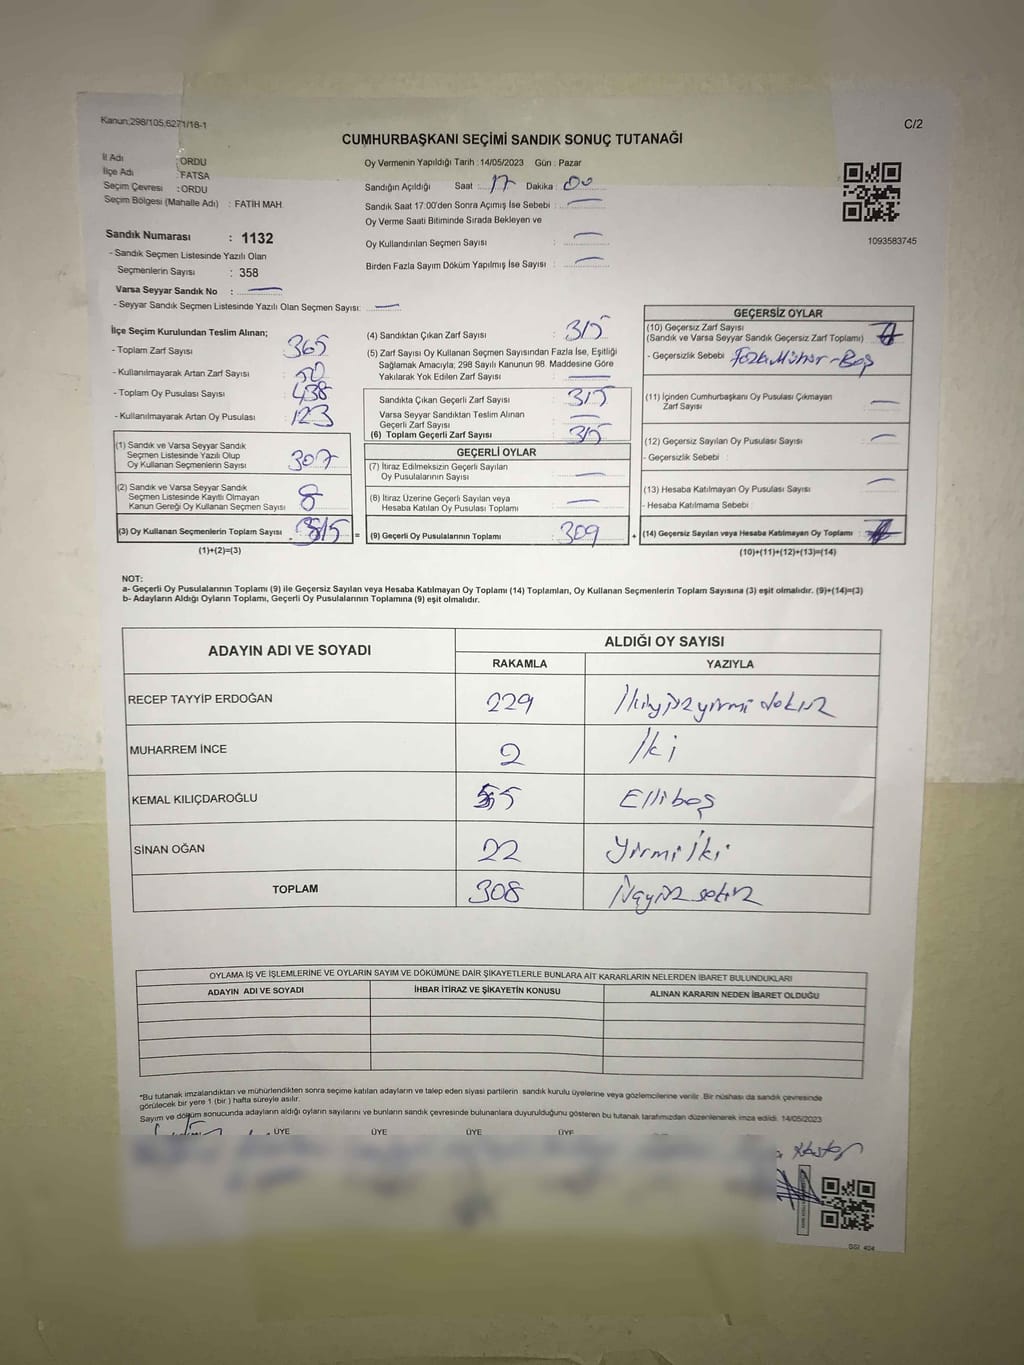 Kanun:298/105,6271/18-1
C/2
CUMHURBAŞKANI SEÇİMİ SANDIK SONUÇ TUTANAĞI
İl Adı : ORDU
İlçe Adı : FATSA
Seçim Çevresi : ORDU
Seçim Bölgesi (Mahalle Adı) : FATİH MAH.
Oy Vermenin Yapıldığı Tarih : 14/05/2023 Gün : Pazar
Sandığın Açıldığı Saat : 17 Dakika : 00
Sandık Saat 17:00'den Sonra Açımış İse Sebebi : —
Oy Verme Saati Bitiminde Sırada Bekleyen ve
Oy Kullandırılan Seçmen Sayısı : —
Birden Fazla Sayım Döküm Yapılmış İse Sayısı : —
1093583745
Sandık Numarası : 1132
- Sandık Seçmen Listesinde Yazılı Olan
Seçmenlerin Sayısı : 358
Varsa Seyyar Sandık No : —
- Seyyar Sandık Seçmen Listesinde Yazılı Olan Seçmen Sayısı: —
İlçe Seçim Kurulundan Teslim Alınan;
- Toplam Zarf Sayısı 365
- Kullanılmayarak Artan Zarf Sayısı 50
- Toplam Oy Pusulası Sayısı 438
- Kullanılmayarak Artan Oy Pusulası 123
(1) Sandık ve Varsa Seyyar Sandık
Seçmen Listesinde Yazılı Olup
Oy Kullanan Seçmenlerin Sayısı 307
(2) Sandık ve Varsa Seyyar Sandık
Seçmen Listesinde Kayıtlı Olmayan
Kanun Gereği Oy Kullanan Seçmen Sayısı 8
(3) Oy Kullanan Seçmenlerin Toplam Sayısı 315 =
(1)+(2)=(3)
(4) Sandıktan Çıkan Zarf Sayısı : 315
(5) Zarf Sayısı Oy Kullanan Seçmen Sayısından Fazla İse, Eşitliği
Sağlamak Amacıyla; 298 Sayılı Kanunun 98. Maddesine Göre
Yakılarak Yok Edilen Zarf Sayısı : —
Sandıkta Çıkan Geçerli Zarf Sayısı : 315
Varsa Seyyar Sandıktan Teslim Alınan
Geçerli Zarf Sayısı : —
(6) Toplam Geçerli Zarf Sayısı : 315
GEÇERLİ OYLAR
(7) İtiraz Edilmeksizin Geçerli Sayılan
Oy Pusulalarının Sayısı : —
(8) İtiraz Üzerine Geçerli Sayılan veya
Hesaba Katılan Oy Pusulası Toplamı : —
(9) Geçerli Oy Pusulalarının Toplamı : 309 +
GEÇERSİZ OYLAR
(10) Geçersiz Zarf Sayısı
(Sandık ve Varsa Seyyar Sandık Geçersiz Zarf Toplamı) :
- Geçersizlik Sebebi : Fazla Mühür - Boş
(11) İçinden Cumhurbaşkanı Oy Pusulası Çıkmayan
Zarf Sayısı : —
(12) Geçersiz Sayılan Oy Pusulası Sayısı : —
- Geçersizlik Sebebi :
(13) Hesaba Katılmayan Oy Pusulası Sayısı : —
- Hesaba Katılmama Sebebi :
(14) Geçersiz Sayılan veya Hesaba Katılmayan Oy Toplamı :
(10)+(11)+(12)+(13)=(14)
NOT:
a- Geçerli Oy Pusulalarının Toplamı (9) ile Geçersiz Sayılan veya Hesaba Katılmayan Oy Toplamı (14) Toplamları, Oy Kullanan Seçmenlerin Toplam Sayısına (3) eşit olmalıdır. (9)+(14)=(3)
b- Adayların Aldığı Oyların Toplamı, Geçerli Oy Pusulalarının Toplamına (9) eşit olmalıdır.
ADAYIN ADI VE SOYADI
ALDIĞI OY SAYISI
RAKAMLA YAZIYLA
RECEP TAYYİP ERDOĞAN 229 İkiyüzyirmi dokuz
MUHARREM İNCE 2 İki
KEMAL KILIÇDAROĞLU 55 Ellibeş
SİNAN OĞAN 22 Yirmi iki
TOPLAM 308 Üçyüz sekiz
OYLAMA İŞ VE İŞLEMLERİNE VE OYLARIN SAYIM VE DÖKÜMÜNE DAİR ŞİKAYETLERLE BUNLARA AİT KARARLARIN NELERDEN İBARET BULUNDUKLARI
ADAYIN ADI VE SOYADI İHBAR İTİRAZ VE ŞİKAYETİN KONUSU ALINAN KARARIN NEDEN İBARET OLDUĞU
*Bu tutanak imzalandıktan ve mühürlendikten sonra seçime katılan adayların ve talep eden siyasi partilerin sandık kurulu üyelerine veya gözlemcilerine verilir. Bir nüshası da sandık çevresinde
görülecek bir yere 1 (bir ) hafta süreyle asılır.
Sayım ve döküm sonucunda adayların aldığı oyların sayılarını ve bunların sandık çevresinde bulunanlara duyurulduğunu gösteren bu tutanak tarafımızdan düzenlenerek imza edildi. 14/05/2023
ÜYE ÜYE ÜYE ÜYE